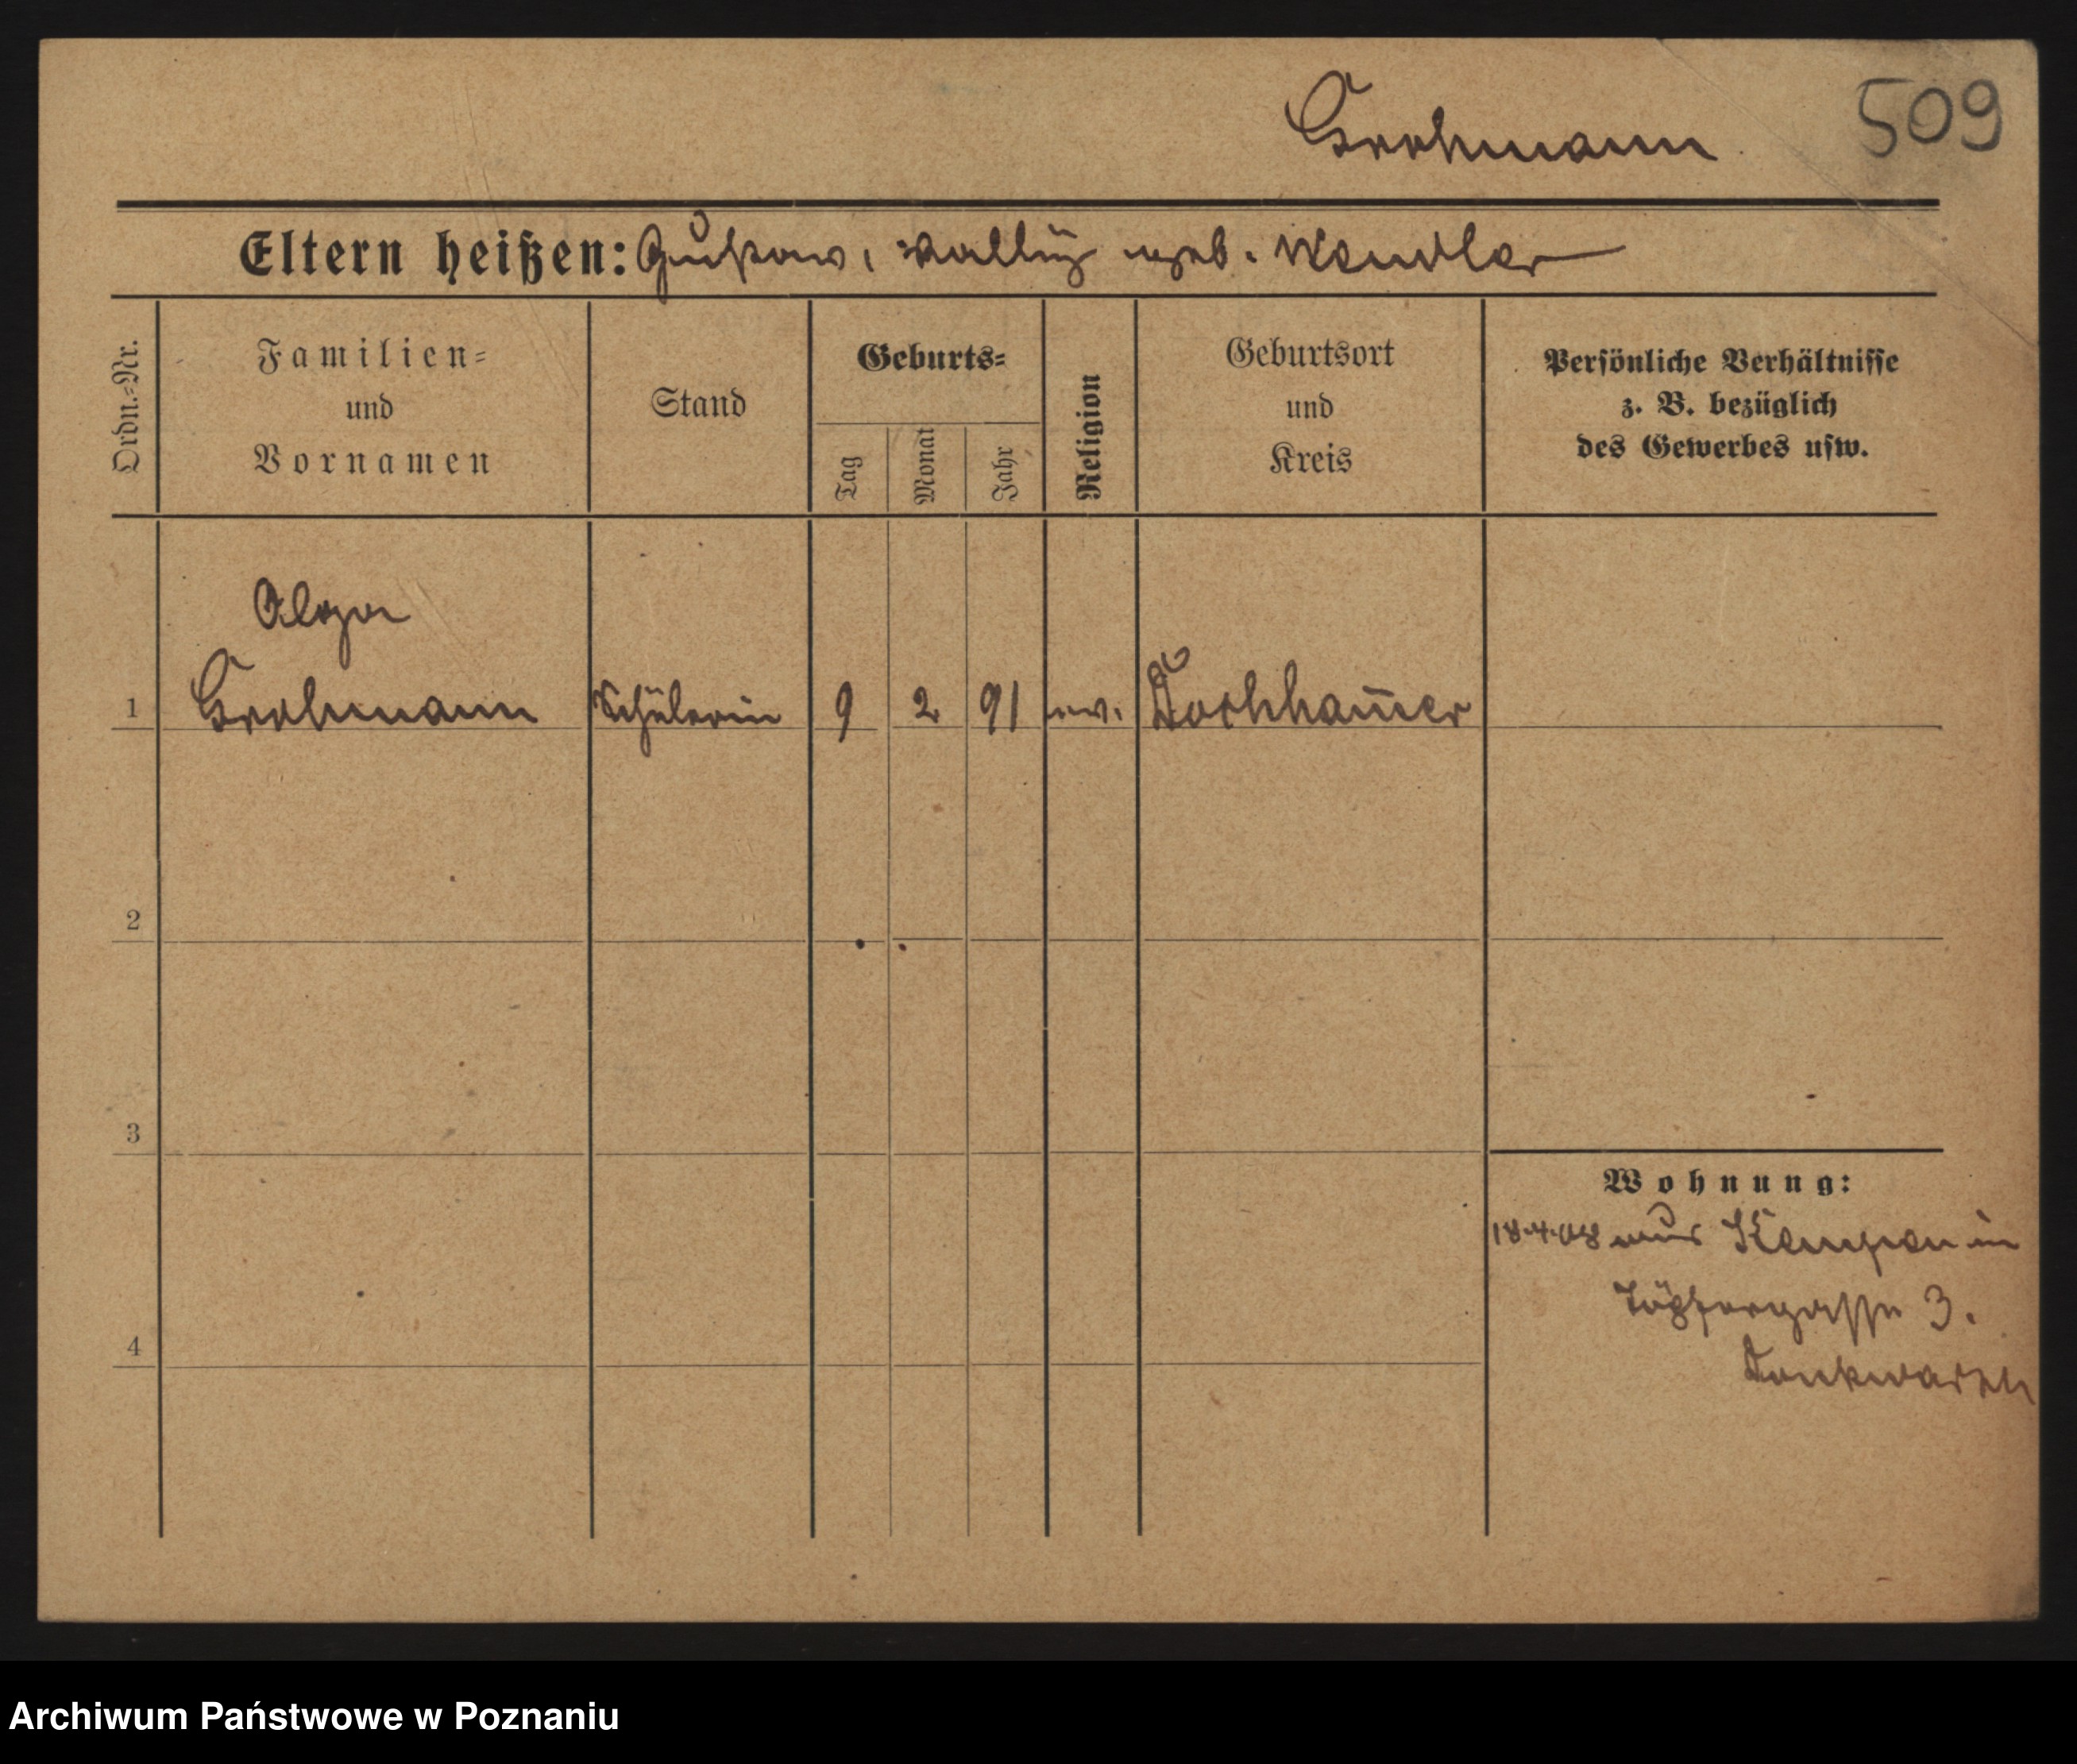 Grohmann
509
Eltern heißen: Gustav, geb. Wendler
Ordn.=Nr.
Familien=
und
Vornamen
Stand
Geburts=
Tag
Monat
Jahr
Religion
Geburtsort
und
Kreis
Persönliche Verhältnisse
z. B. bezüglich
des Gewerbes usw.
1
Grohmann
Schülerin
9
2
91
ev.
2
3
4
Wohnung:
18.4.08 aus Kempen in
Töpfergasse 3.
Archiwum Państwowe w Poznaniu